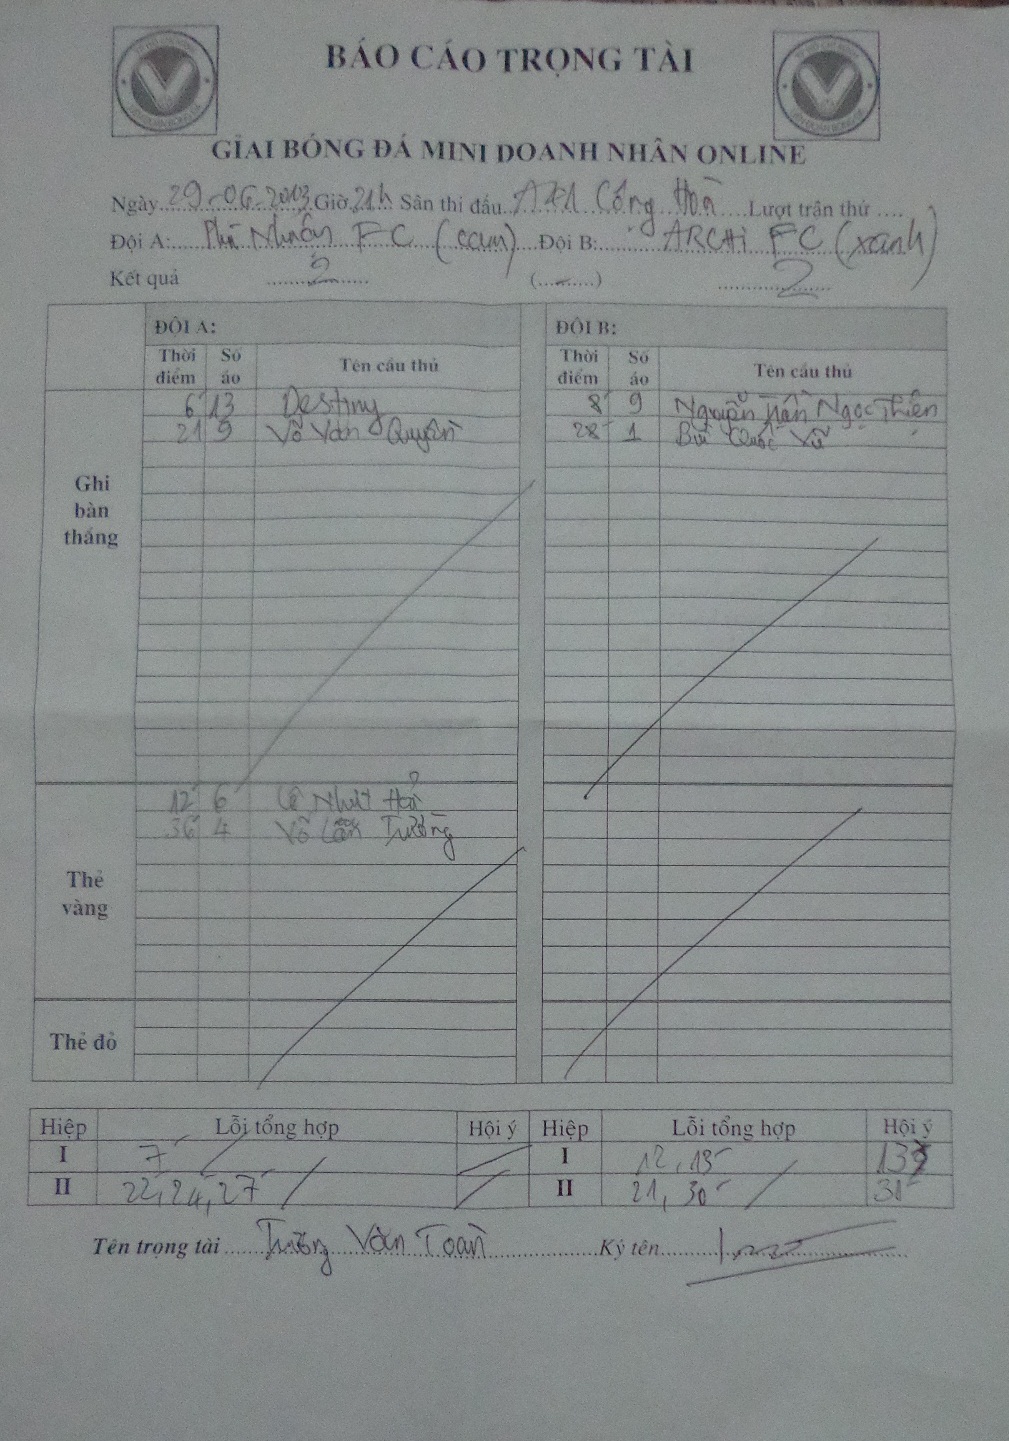 BÁO CÁO TRỌNG TÀI
GIẢI BÓNG ĐÁ MINI DOANH NHÂN ONLINE
Ngày 29-06-2013 Giờ 21h Sân thi đấu A41 Cộng Hoà Lượt trận thứ ....
Đội A: Phú Nhuận FC (cam) Đội B: ARCHI FC (xanh)
Kết quả 2 (...-...) 2
ĐỘI A: ĐỘI B:
Thời điểm Số áo Tên cầu thủ Thời điểm Số áo Tên cầu thủ
Ghi bàn thắng
6' 13 Destiny 8' 9 Nguyễn Trần Ngọc Thiện
21' 9 Võ Văn Quyền 28' 1 Bùi Quốc Vũ
Thẻ vàng
12' 6 Lê Nhựt Hảo
36' 4 Võ Trường
Thẻ đỏ
Hiệp Lỗi tổng hợp Hội ý Hiệp Lỗi tổng hợp Hội ý
I 7' I 12, 15'
II 22, 24, 27' II 21, 30' 31'
Tên trọng tài Trương Văn Toàn Ký tên